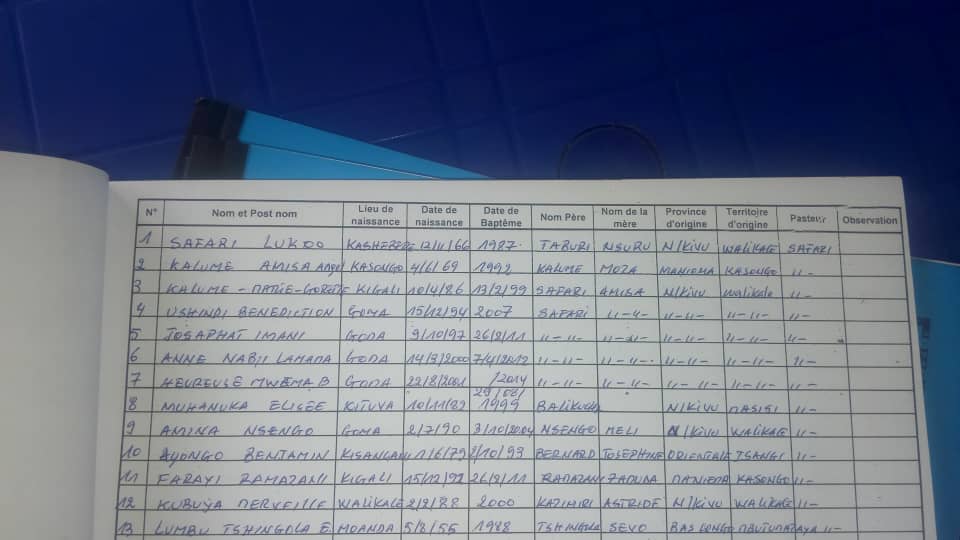 N° Nom et Post nom Lieu de naissance Date de naissance Date de Baptême Nom Père Nom de la mère Province d'origine Territoire d'origine Pasteur Observation
1 SAFARI LUKOO KASHEBERE 12/11/66 1987 TABURI NSURU N/KIVU WALIKALE SAFARI
2 KALUME AMISA KASONGO 4/6/69 1992 KALUME MOZA MANIEMA KASONGO 11-
3 KALUME - MARIE-GORETTE KIGALI 10/4/86 13/2/99 SAFARI AMISA N/KIVU Walikale 11-
4 USHINDI BENEDICTION GOMA 15/12/94 2007 SAFARI 11-11- 11-11- 11-11- 11-
5 JOSAPHAT IMANI GOMA 9/10/97 26/2/11 11-11- 11-11- 11-11- 11-11- 11-
6 ANNE NABJI LAMAMA GOMA 14/3/2000 7/4/2012 11-11- 11-11- 11-11- 11-11- 11-
7 HEUREUSE MWEMA B GOMA 22/8/2001 /2014 11-11- 11-11- 11-11- 11-11- 11-
8 MUHANUKA ELISÉE KITUVA 10/11/82 29/08/ 1999 N/KIVU MASISI 11-
9 AMINA NSENGO GOMA 2/7/90 3/10/2004 NSENGO MELI N/KIVU WALIKALE 11-
10 AYONGO BENJAMIN KISANGANI 1/6/79 2/10/93 BERNARD JOSEPHINE ORIENTALE TSANGI 11-
11 FARAYI RAMAZANI KIGALI 15/12/92 26/2/11 RAMAZANI ZAOUDA MANIEMA KASONGO 11-
12 KUBUYA MERVEILLE WALIKALE 2/2/88 2000 KAZIMIRI ASTRIDE N/KIVU WALIKALE 11-
13 LUMBU TSHINGOLA E. MOANDA 5/8/55 1988 TSHINGOLA SEVO BAS CONGO 11-